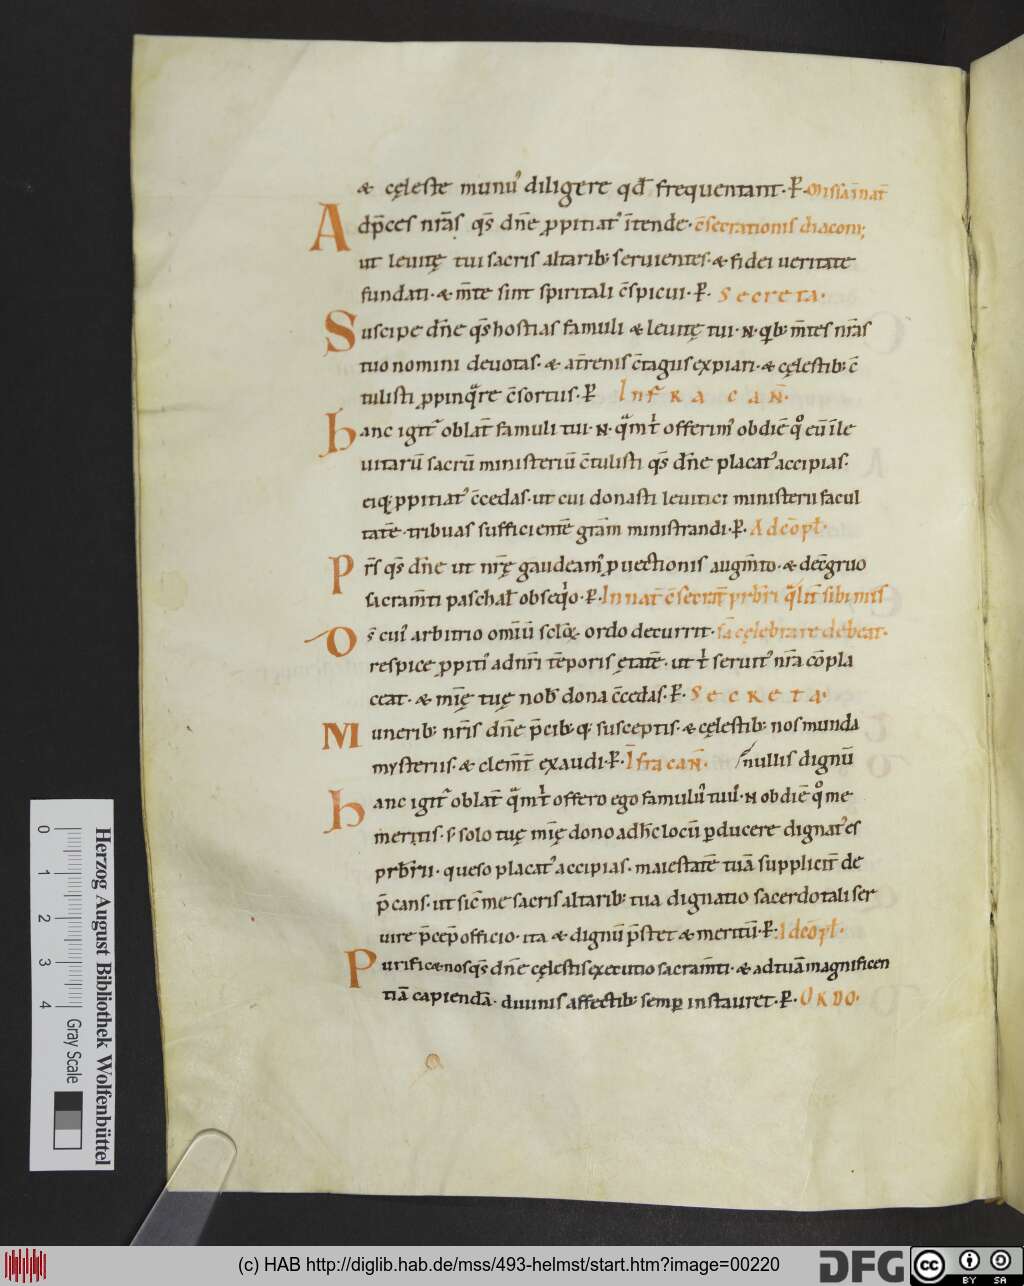 & cęleste munuˀ diligere qd̄ frequentant· P̲· Missa ī nat̄
Adp̄ces nr̄as qs̄ dn̄e ꝓpitiatˀ ītende· c̄secrationis diaconi;
ut leuitę tui sacris altarib; seruientes· & fidei ueritate
fundati· & m̄te sint spiritali c̄spicui· P̲· Secreta·
Suscipe dn̄e qs̄ hostias famuli & leuitę tui· N· qͥb; m̄tes nr̄as
tuo nomini deuotas· & at̄renis c̄tagiis expiari· & cęlestib; c̄
tulisti ꝓpinqͣre c̄sortiis· P̲ Infra can̄·
Hanc igit̄ oblat̄ famuli tui· N· qͣm t̄ offerimˀ ob diē qͦ eū īle
uitarū sacrū ministeriū c̄tulisti qs̄ dn̄e placatˀ accipias·
eiq; ꝓpitiatˀ c̄cedas· ut cui donasti leuitici ministerii facul
tatē· tribuas sufficientē gr̄am ministrandi· P̲· Ad cōpl̄·
Pr̄s qs̄ dn̄e ut nr̄ę gaudeamˀ ꝓuectionis augm̄to· & dec̄gruo
sacram̄ti paschal̄ obseqͥo· P̲· In nat̄ c̄secrat̄ prb̄ri qͣlit̄ sibi mis
Ds̄ cuiˀ arbitrio omīū scl̄oꝝ ordo decurrit· sā cęlebrare debeat·
respice ꝓpitiˀ ad nr̄i tēporis ętatē· ut t̄ seruitˀ nr̄a cōpla
ceat· & mīę tuę nob̄ dona c̄cedas· P̲· Secreta·
Munerib; nr̄is dn̄e p̄cib; q; susceptis· & cęlestib; nos munda
mysteriis· & clem̄t̄ exaudi· P̲· Īfra can̄· nullis dignū
Hanc igit̄ oblat̄ qͣm t̄ offero ego famulˀ tuuˀ· N ob diē qͦ me
meritis· s̄ solo tuę mīę dono ad hc̄ locū ꝑducere dignatˀ es
prb̄rii· queso placatˀ accipias· maiestatē tuā supplicit̄ de
p̄cans· ut sic̄ me sacris altarib; tua dignatio sacerdotali ser
uire p̄cep̄ officio· ita & dignū p̄stet & meritū· P̲· Ad cōpl̄·
Purific& nos qs̄ dn̄e cęlestis executio sacram̄ti· & ad tuā magnificen
tiā capiendā· diuinis affectib; semꝑ instauret· P̲· ORDO·
Herzog August Bibliothek Wolfenbüttel
0 1 2 3 4
Gray Scale
(c) HAB http://diglib.hab.de/mss/493-helmst/start.htm?image=00220
DFG
cc BY SA